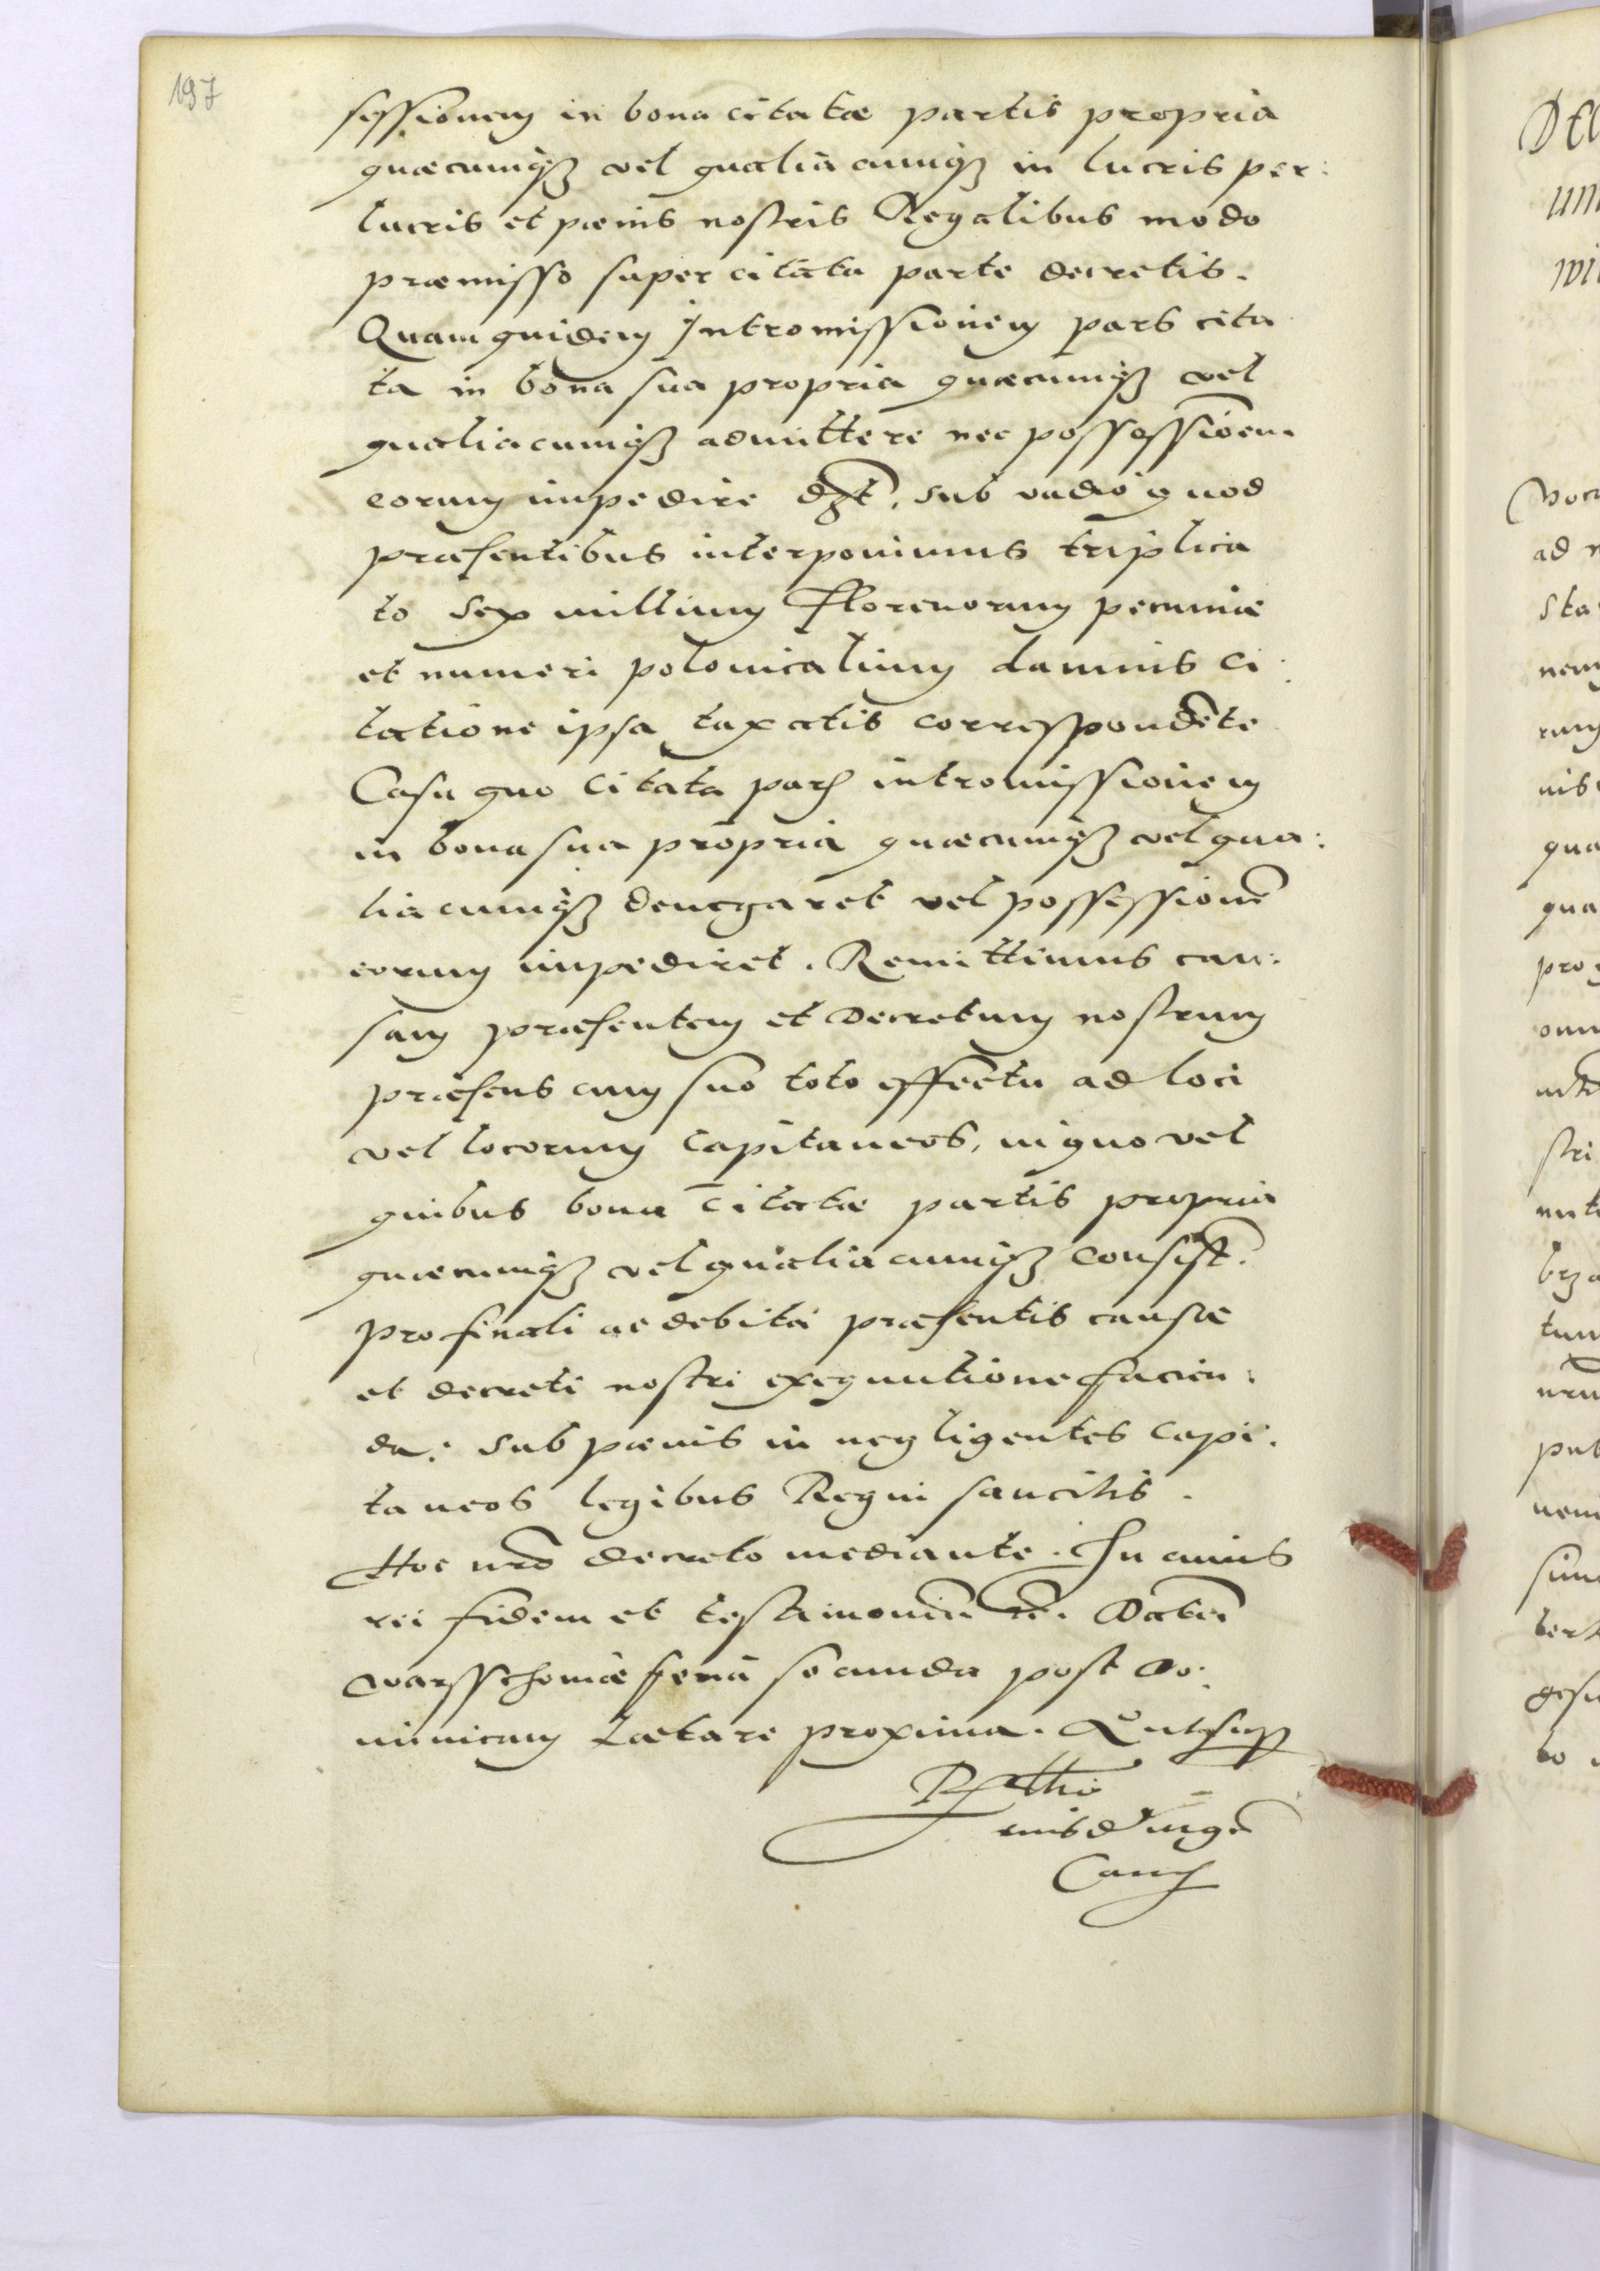 197
sessionem in bona citatæ partis propria
quæcumq3 vel qualiacumq3 in lucris per:
lucris et pænis nostris Regalibus modo
præmisso super citata parte decretis.
Quam quidem Intromissionem pars cita
ta in bona sua propria quæcumq3 vel
qualiacumq3 admittere nec possessionem
eorum impedire dēt, sub vadio quod
præsentibus interponimus triplica
to Sex millium Florenorum pecuniæ
et numeri polonicalium damnis ci:
tatione ipsa taxatis correspondēte
Casu quo Citata pars intromissionem
in bona sua propria quæcumq3 vel qua:
liacumq3 denegaret vel possessionē
eorum impediret. Remittimus cau:
sam præsentem et Decretum nostrum
præsens cum suo toto effectu ad loci
vel locorum Capitaneos, in quo vel
quibus bona Citatæ partis propria
quæcumq3 vel qualiacumq3 consist.
pro finali ac debita præsentis causæ
et decreti nostri exequutione facien:
da: sub pænis in negligentes capi:
taneos legibus Regni sancitis.
Hoc nrō decreto mediante. In cuius
rei fidem et testimoniū rē. Datū
Warsschoviæ feria secunda post Do:
minicam Lætare proxima. Ut sup
Canc
DEC
ad
sta
nem
rum
nis
qua
qua
stri
tum
pub
bert
gesi
to